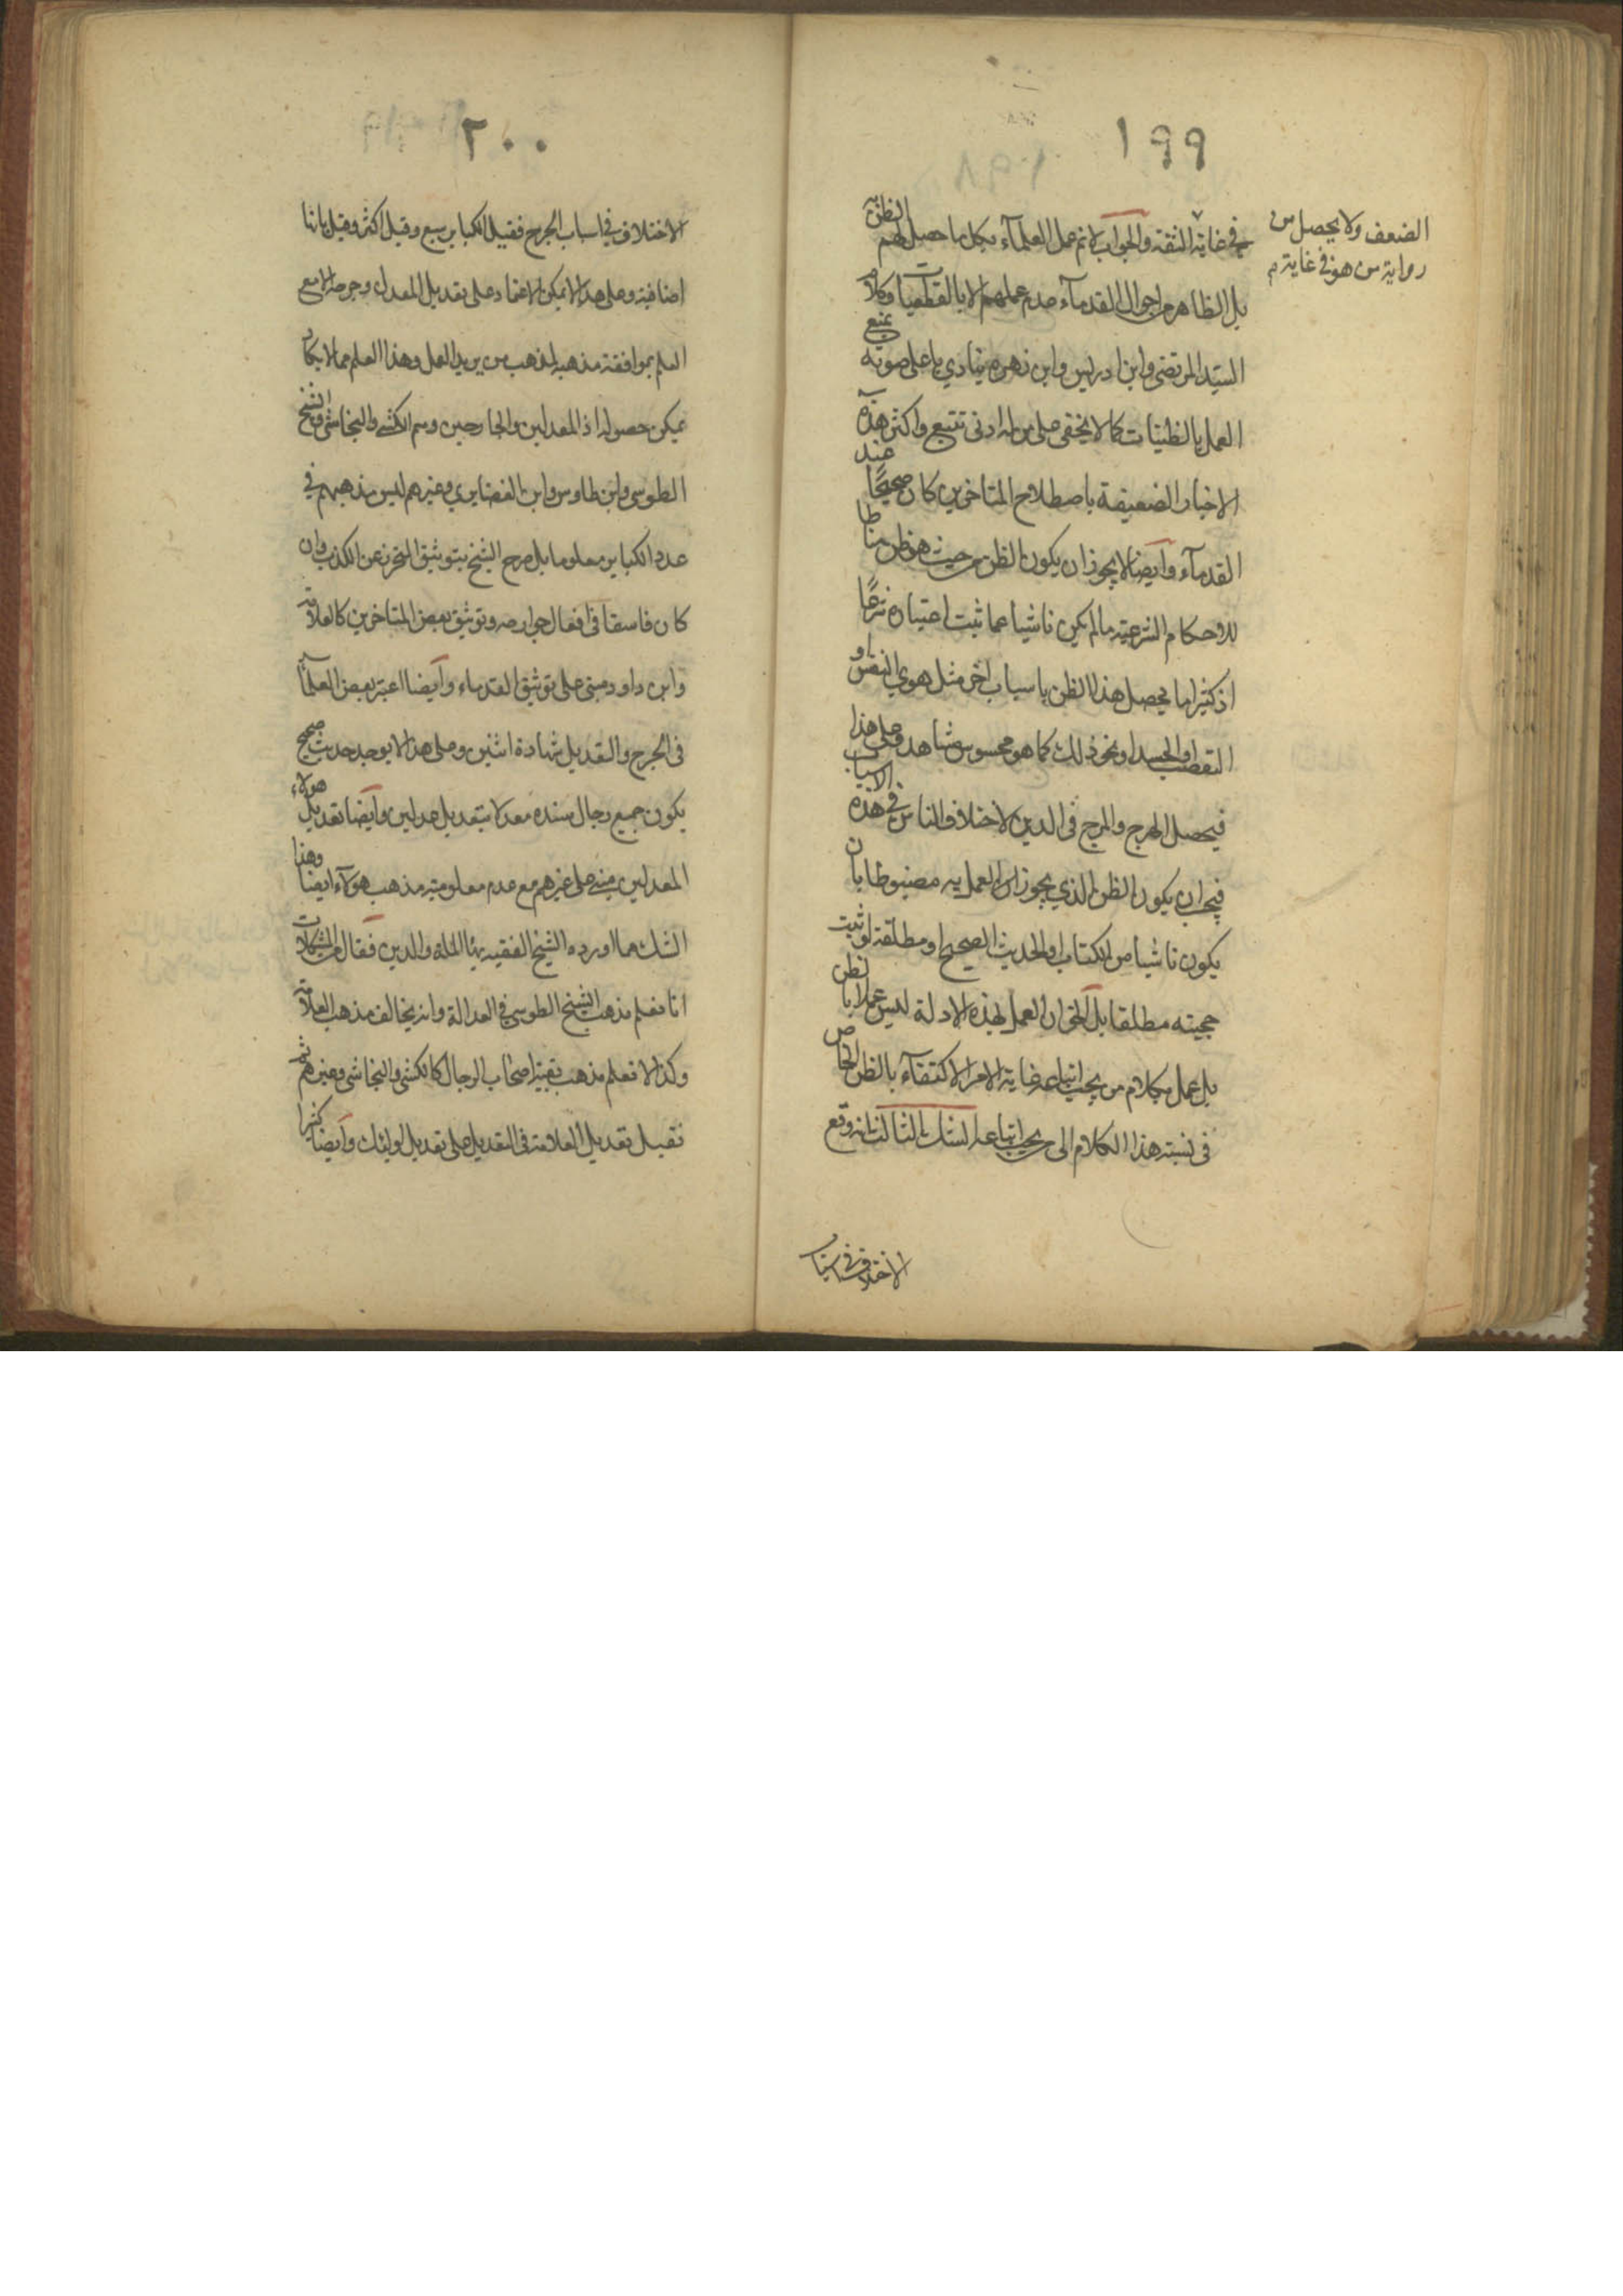 ١٩٩
الضعف ولا يحصل من
رواية من هو في غاية م
في غاية الثقة والجواب لانم عمل العلمآء بكل ما حصل لهم الظن به
بل الظاهر من احوال القدمآء عدم عملهم الا بالقطعيات وكلام
السيد المرتضى وابن ادريس وابن زهرة ينادي باعلى صوته بمنع
العمل بالظنيات كما لا يخفى على من له ادنى تتبع واكثر هذه
الاخبار الضعيفة باصطلاح المتاخرين كان صحيحًا عند
القدمآء وآيضا لا يجوز ان يكون الظن من حيث هو ظن مناطا
للاحكام الشرعية مالم يكن ناشيا عما ثبت اعتباره شرعًا
اذ كثيرا ما يحصل هذا الظن باسباب اخر مثل هوي النفس او
التعصب او الحسد او نحو ذلك كما هو محسوس مشاهد وعلى هذا
فيحصل الهرج والمرج في الدين لاختلاف الناس في هذه الاسباب
فيجب ان يكون الظن الذي يجوز العمل به مضبوطا بان
يكون ناشيا من الكتاب او الحديث الصحيح او مطلقه لو ثبت
حجيته مطلقا بل الحق ان العمل بهذه الادلة ليس عملا بالظن
بل عمل بكلام من يجب اتباعه غاية الامر الاكتفآء بالظن الخاص
في نسبة هذا الكلام الى من يجب اتباعه الشك الثالث انه وقع
الاختلاف في اسباب
٢٠٠
الاختلاف في اسباب الجرح فقيل الكباير سبع وقيل اكثر وقيل بانها
اضافية وعلى هذا لا يمكن الاعتماد على تعديل المعدل وجرحه الا مع
العلم بموافقة مذهبه لمذهب من يريد العمل وهذا العلم مما لا يكاد
يمكن حصوله اذ المعدلين والجارحين وهم الكشي والنجاشي والشيخ
الطوسي وابن طاوس وابن الغضايري وغيرهم ليس مذهبهم في
عدد الكباير معلوما بل صرح الشيخ بتوثيق المتحرز عن الكذب وان
كان فاسقا في افعال جوارحه وتوثيق بعض المتاخرين كالعلامة
وابن داود مبني على توثيق القدماء وآيضا اعتبر بعض العلمآ
في الجرح والتعديل شهادة اثنين وعلى هذا لا يوجد حديث صحيح
يكون جميع رجال سنده معدلا بتعديل عدلين وآيضا تعديل هولاء
المعدلين مبني على غيرهم مع عدم معلومية مذهب هولآء ايضا وهذا
الشك مما اورده الشيخ الفقيه بهآ الملة والدين فقال من المشكلات
انا نعلم مذهب الشيخ الطوسي في العدالة وانه يخالف مذهب العلامة
وكذا لا نعلم مذهب بقية اصحاب الرجال كالكشي والنجاشي وغيرهم ثم
نقبل تعديل العلامة في التعديل على تعديل اولئك وآيضا كثيرا